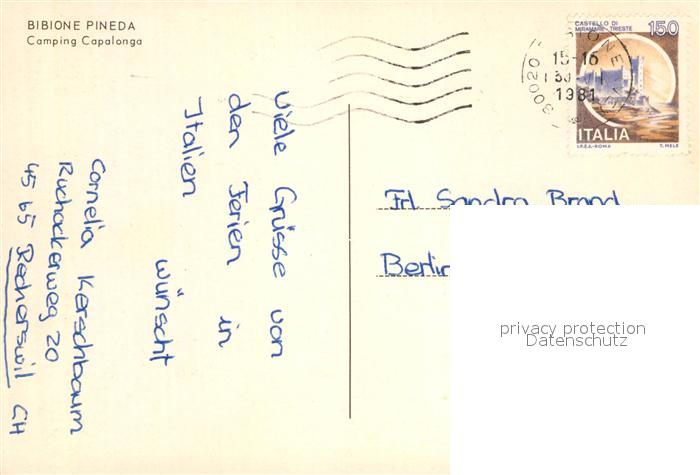 BIBIONE PINEDA
Camping Capalonga
CASTELLO DI
MIRAMARE-TRIESTE
150
ITALIA
I.P.Z.S.-ROMA T. MELE
30020
15-16
1981
Viele Grüsse von
den Ferien in
Italien
wünscht
Cornelia Kerschbaum
Ruchackerweg 20
45 65 Recherswil CH
Frl. Sandra Brand
Berlin
privacy protection
Datenschutz